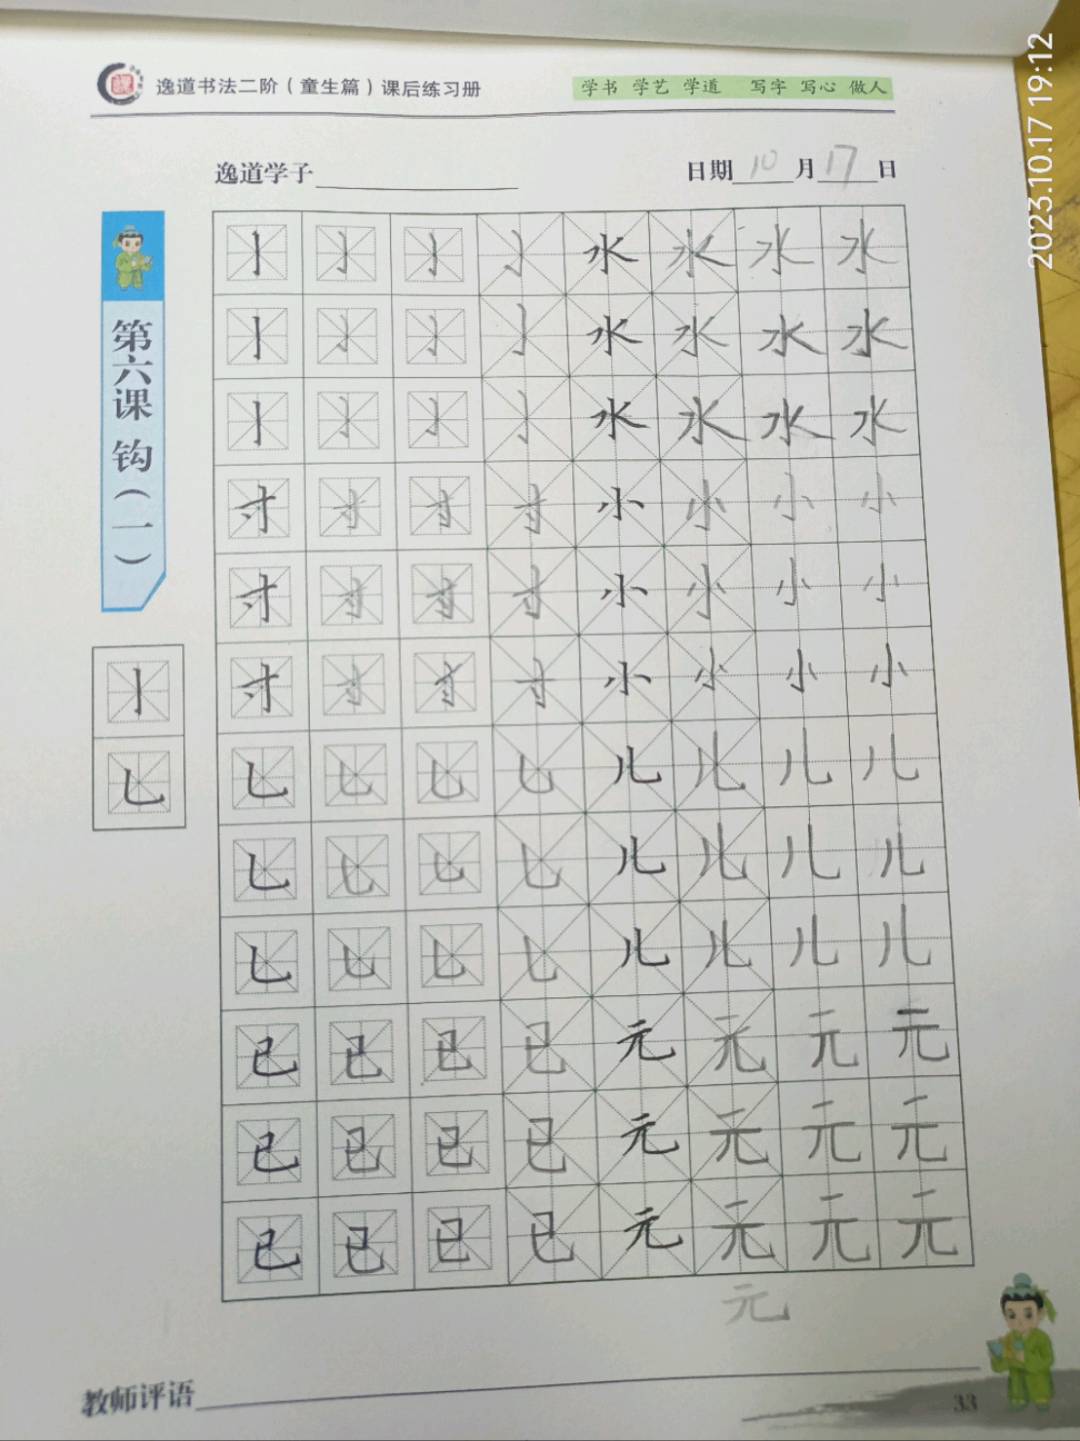 逸道书法二阶（童生篇）课后练习册
学书 学艺 学道 写字 写心 做人
2023.10.17 19:12
逸道学子 日期 10 月 17 日
第六课 钩（一）
亅 亅 亅 亅 水 水 水 水
亅 亅 亅 亅 水 水 水 水
亅 亅 亅 亅 水 水 水 水
寸 寸 寸 寸 小 小 小 小
寸 寸 寸 寸 小 小 小 小
寸 寸 寸 寸 小 小 小 小
乚 乚 乚 乚 儿 儿 儿 儿
乚 乚 乚 乚 儿 儿 儿 儿
乚 乚 乚 乚 儿 儿 儿 儿
己 己 己 己 元 元 元 元
己 己 己 己 元 元 元 元
己 己 己 己 元 元 元 元
元
亅
乚
教师评语
33